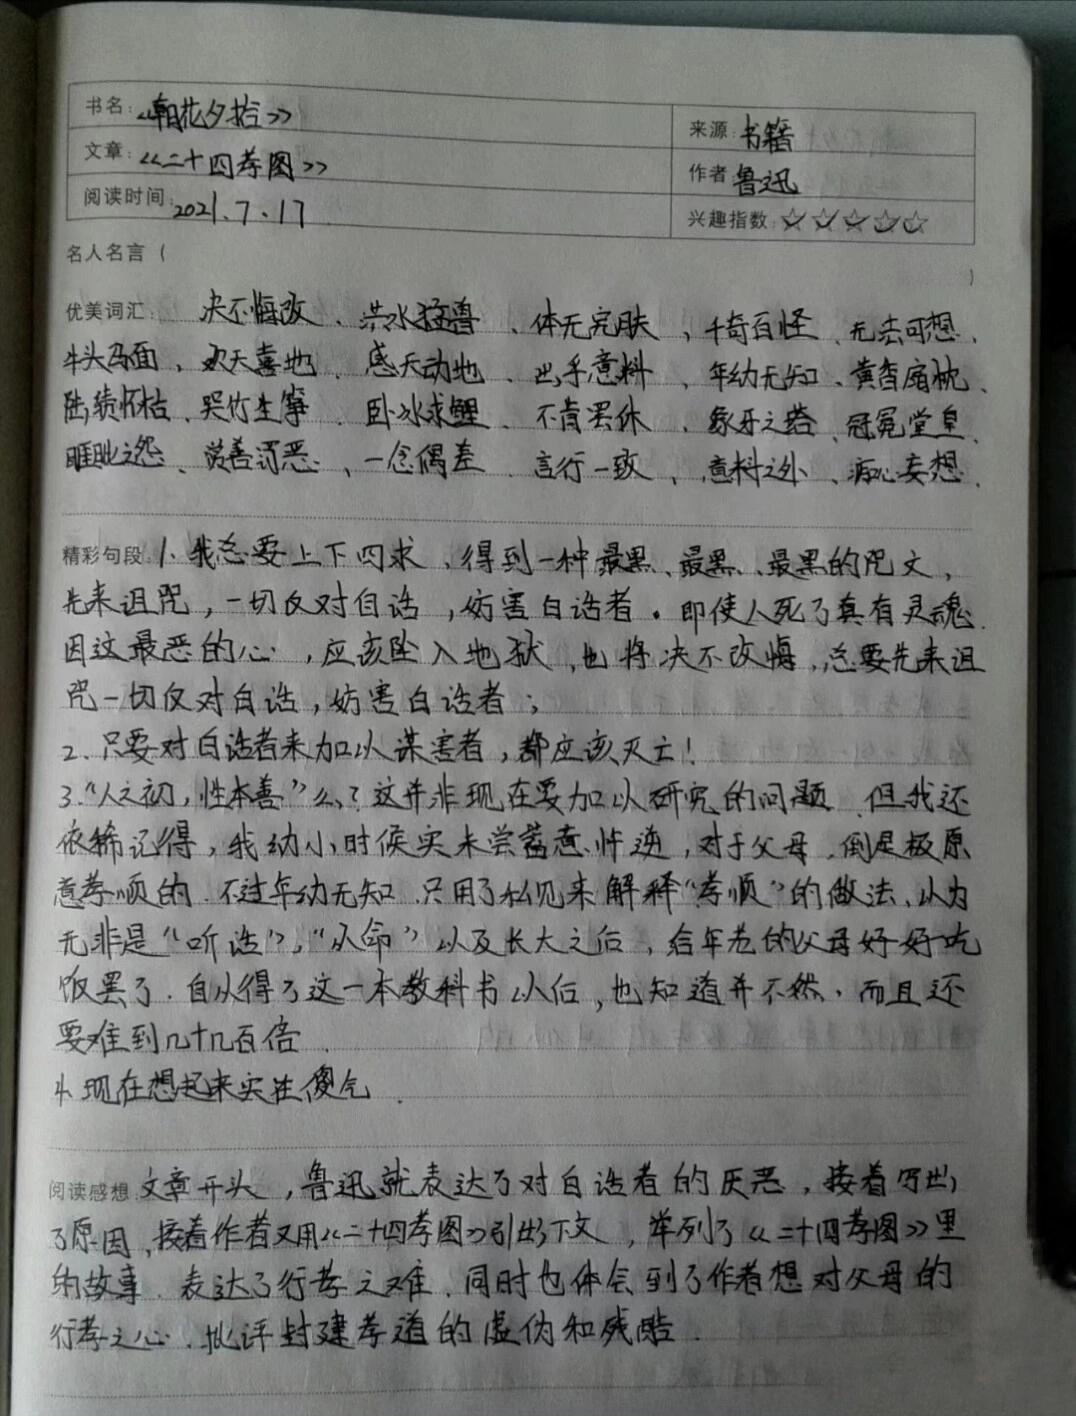 书名：《朝花夕拾》
来源：书籍
文章：《二十四孝图》
作者：鲁迅
阅读时间：2021.7.17
兴趣指数：☆☆☆☆☆
名人名言（ ）
优美词汇：决不悔改、洪水猛兽、体无完肤、千奇百怪、无法可想、
牛头马面、欢天喜地、感天动地、出乎意料、年幼无知、黄香扇枕、
陆绩怀桔、哭竹生笋、卧冰求鲤、不肯罢休、象牙之塔、冠冕堂皇、
睚眦之怨、赏善罚恶、一念偶差、言行一致、意料之外、痴心妄想、
精彩句段：1、我总要上下四求，得到一种最黑、最黑、最黑的咒文，
先来诅咒，一切反对白话，妨害白话者。即使人死了真有灵魂，
因这最恶的心，应该坠入地狱，也将决不改悔，总要先来诅
咒一切反对白话，妨害白话者；
2、只要对白话者来加以谋害者，都应该灭亡！
3、“人之初，性本善”么？这并非现在要加以研究的问题，但我还
依稀记得，我幼小时候实未尝蓄意忤逆，对于父母，倒是极原
意孝顺的，不过年幼无知，只用了私见来解释“孝顺”的做法，以为
无非是“听话”，“从命”以及长大之后，给年老的父母好好吃
饭罢了。自从得了这一本教科书以后，也知道并不然，而且还
要难到几十几百倍
4、现在想起来实在傻气。
阅读感想：文章开头，鲁迅就表达了对白话者的厌恶，接着写出
了原因，接着作者又用《二十四孝图》引出下文，举列了《二十四孝图》里
的故事，表达了行孝之难，同时也体会到了作者想对父母的
行孝之心，批评封建孝道的虚伪和残酷。